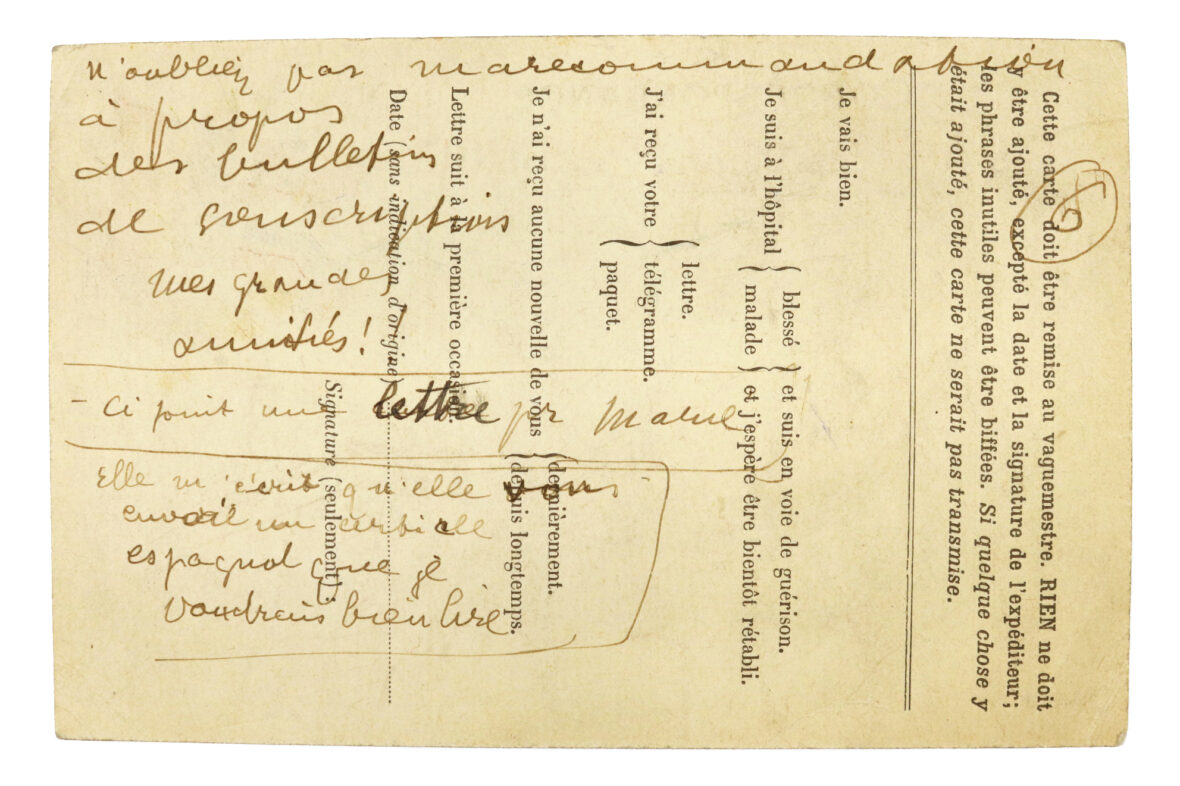 n'oubliez pas ma recommandation
à propos
des bulletins
de souscriptions
mes grandes
amitiés!
- Ci joint une lettre pr
Elle m'écrit qu'elle vous
envoie un article
espagnol que je
voudrais bien lire
Cette carte doit être remise au vaguemestre. RIEN ne doit
y être ajouté, excepté la date et la signature de l'expéditeur;
les phrases inutiles peuvent être biffées. Si quelque chose y
était ajouté, cette carte ne serait pas transmise.
Je vais bien.
Je suis à l'hôpital { blessé } et suis en voie de guérison.
{ malade } et j'espère être bientôt rétabli.
J'ai reçu votre { lettre.
télégramme.
paquet.
Je n'ai reçu aucune nouvelle de vous { dernièrement.
depuis longtemps.
Lettre suit à la première occasion.
Date (sans indication d'origine)
Signature (seulement):